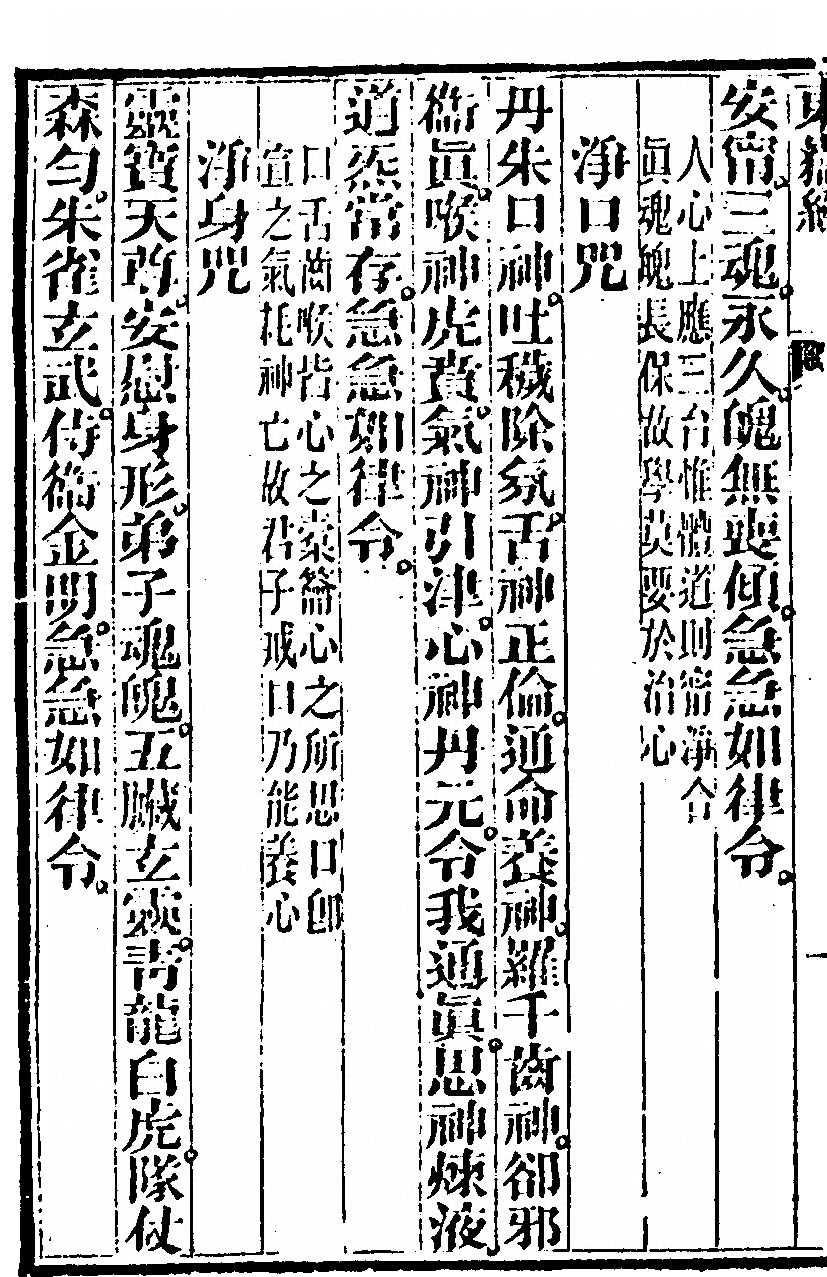 安甯。三魂。永久。魄無喪傾。急急如律令。
人心上應三台惟體道則甯淨合
眞魂魄長保故學莫要於治心
淨口咒
丹朱口神。吐穢除氛。舌神正倫。通命養神。羅千齒神。卻邪
衞眞。喉神虎賁。氣神引津。心神丹元。令我通眞。思神煉液。
道炁常存。急急如律令。
口舌齒喉皆心之橐籥心之所思口卽
值之氣耗神亡故君子戒口乃能養心
淨身咒
靈寶天尊。安慰身形。弟子魂魄。五臟玄靈。青龍白虎。隊仗
森勻。朱雀玄武。侍衞金明。急急如律令。